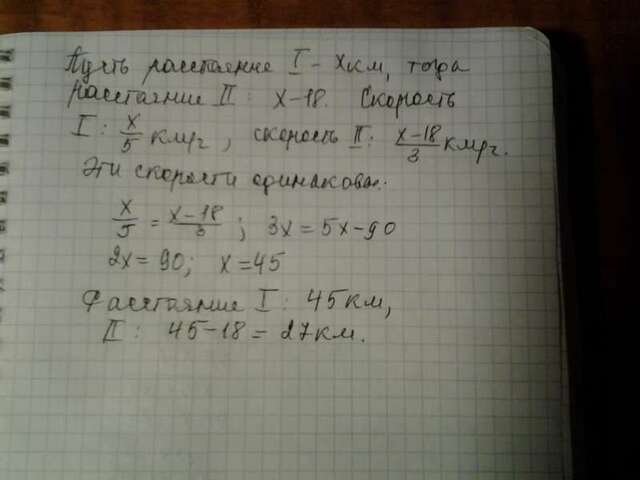 Пусть расстояние I - x км, тогда
расстояние II : x-18. Скорость
I : x/5 км/ч, скорость II : x-18/3 км/ч.
Эти скорости одинаковы:
x/5 = x-18/3 ; 3x = 5x-90
2x = 90; x = 45
Расстояние I : 45 км,
II : 45-18 = 27 км.